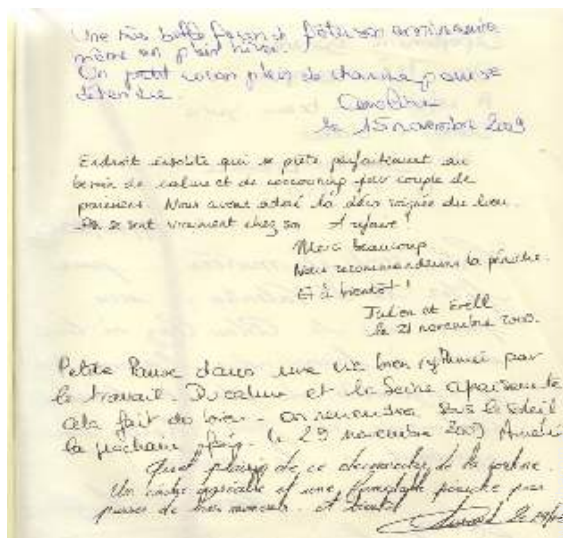 Une très belle façon de fêter son anniversaire
même en plein hiver.
Un petit cocon plein de charme pour se
détendre.
Caroline
le 15 novembre 2009
Endroit insolite qui se prête parfaitement au
besoin de calme et de cocooning pour couple de
parisiens. Nous avons adoré la déco soignée du lieu.
On se sent vraiment chez soi. A refaire !
Merci beaucoup
Nous recommanderons la péniche.
Et à bientôt !
et
le 21 novembre 2009.
Petite Pause dans une vie bien rythmée par
le travail. Du calme et la Seine apaisante
cela fait du bien. on reviendra sous le soleil
la prochaine fois. (le 29 novembre 2009)
Quel plaisir de ce de la
Un cadre agréable et une péniche pour
passer de bons moments. A bientôt